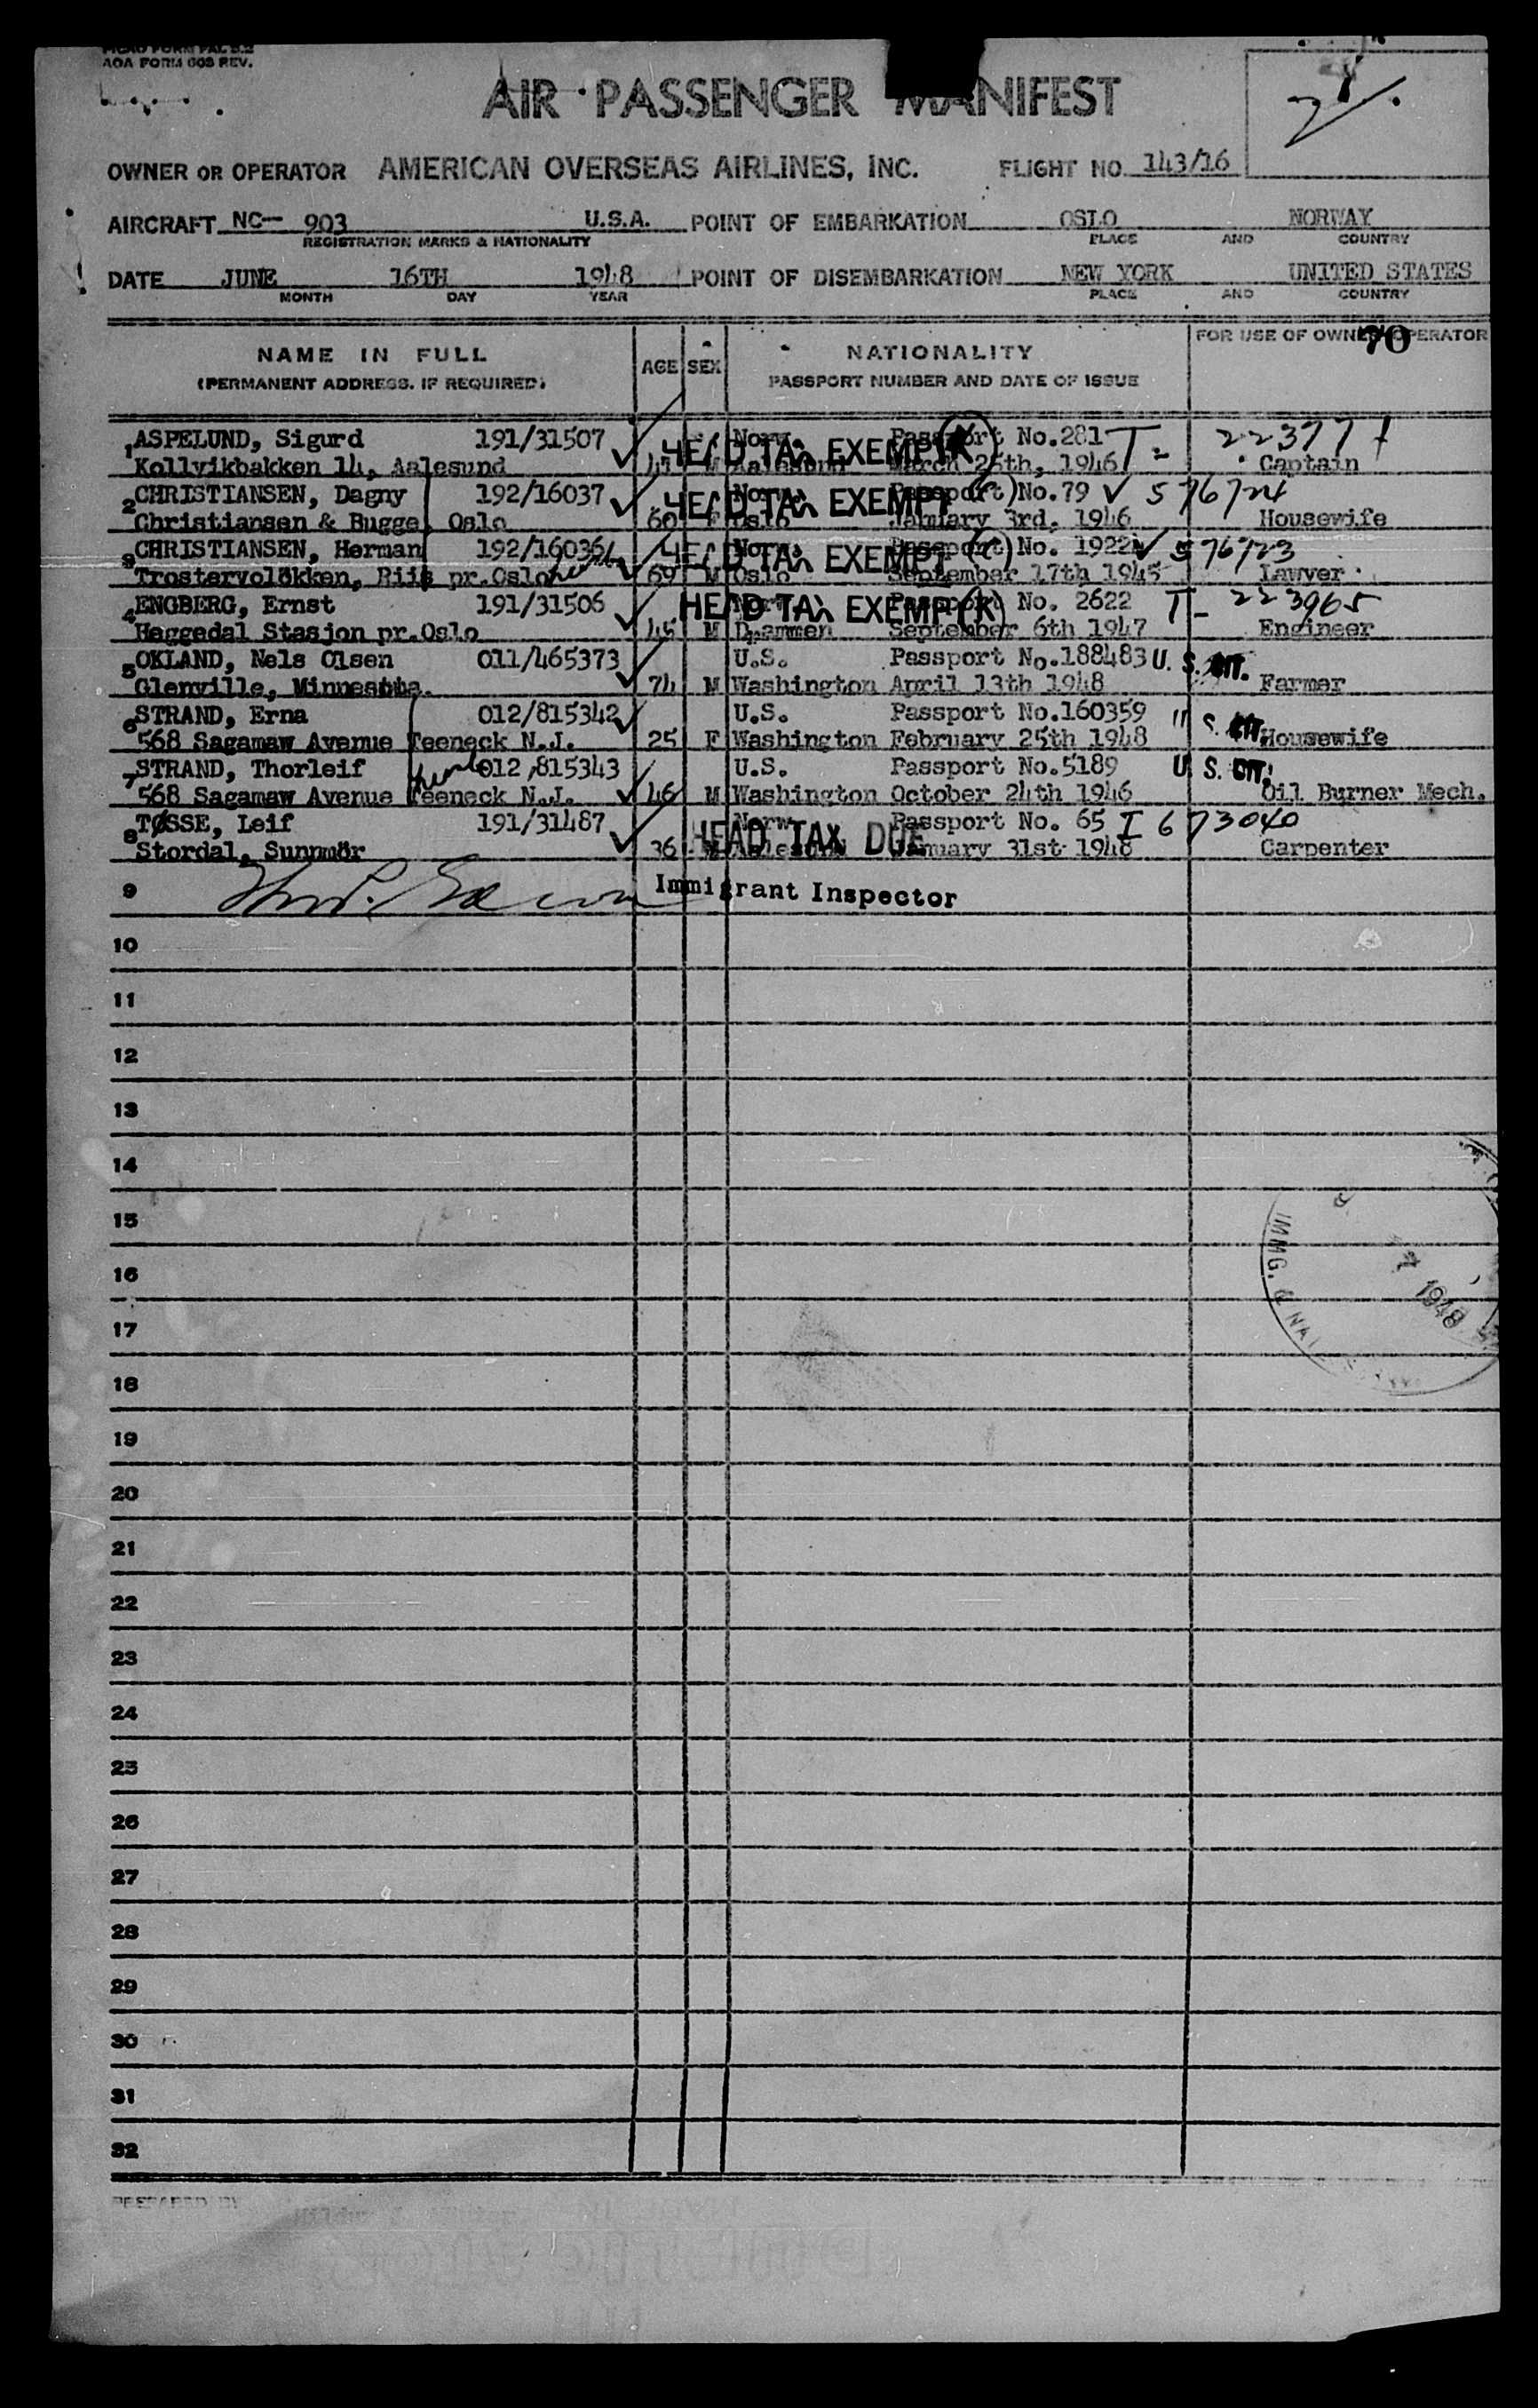 AOA FORM 603 REV.
AIR PASSENGER MANIFEST
OWNER OR OPERATOR AMERICAN OVERSEAS AIRLINES, INC. FLIGHT NO. 143/16
AIRCRAFT NC— 903 U.S.A. POINT OF EMBARKATION OSLO NORWAY
REGISTRATION MARKS & NATIONALITY PLACE AND COUNTRY
DATE JUNE 16TH 1948 POINT OF DISEMBARKATION NEW YORK UNITED STATES
MONTH DAY YEAR PLACE AND COUNTRY
NAME IN FULL AGE SEX NATIONALITY FOR USE OF OWNER OPERATOR 70
(PERMANENT ADDRESS, IF REQUIRED) PASSPORT NUMBER AND DATE OF ISSUE
1 ASPELUND, Sigurd 191/31507 HEAD TAX EXEMPT Norw. Passport No.281 T-
Kollvikbakken 14, Aalesund M Aalesund March 25th, 1946 Captain
2 CHRISTIANSEN, Dagny 192/16037 HEAD TAX EXEMPT Norw. Passport No.79 576724
Christiansen & Bugge, Oslo 60 F Oslo January 3rd, 1946 Housewife
3 CHRISTIANSEN, Herman 192/16036 HEAD TAX EXEMPT Norw. Passport No. 1922 576723
Trostervolökken, Riis pr.Oslo 69 M Oslo September 17th 1945 Lawyer
4 ENGBERG, Ernst 191/31506 HEAD TAX EXEMPT (K) Norw. Passport No. 2622 T- 223965
Heggedal Stasjon pr.Oslo 45 M Drammen September 6th 1947 Engineer
5 OKLAND, Nels Olsen 011/465373 U.S. Passport No.188483 U. S. CIT.
Glenville, Minnesota. 74 M Washington April 13th 1948 Farmer
6 STRAND, Erna 012/815342 U.S. Passport No.160359 U. S. CIT.
568 Sagamaw Avenue Teeneck N.J. 25 F Washington February 25th 1948 Housewife
7 STRAND, Thorleif 012,815343 U.S. Passport No.5189 U. S. CIT.
568 Sagamaw Avenue Teeneck N.J. 46 M Washington October 24th 1946 Oil Burner Mech.
8 TØSSE, Leif 191/31487 HEAD TAX DUE Norw. Passport No. 65 I 673040
Stordal, Sunnmör 36 M Aalesund January 31st 1948 Carpenter
9 Immigrant Inspector
10
11
12
13
14
15
16
17
18
19
20
21
22
23
24
25
26
27
28
29
30
31
32
IMMG. & NAT.
1948
PREPARED BY